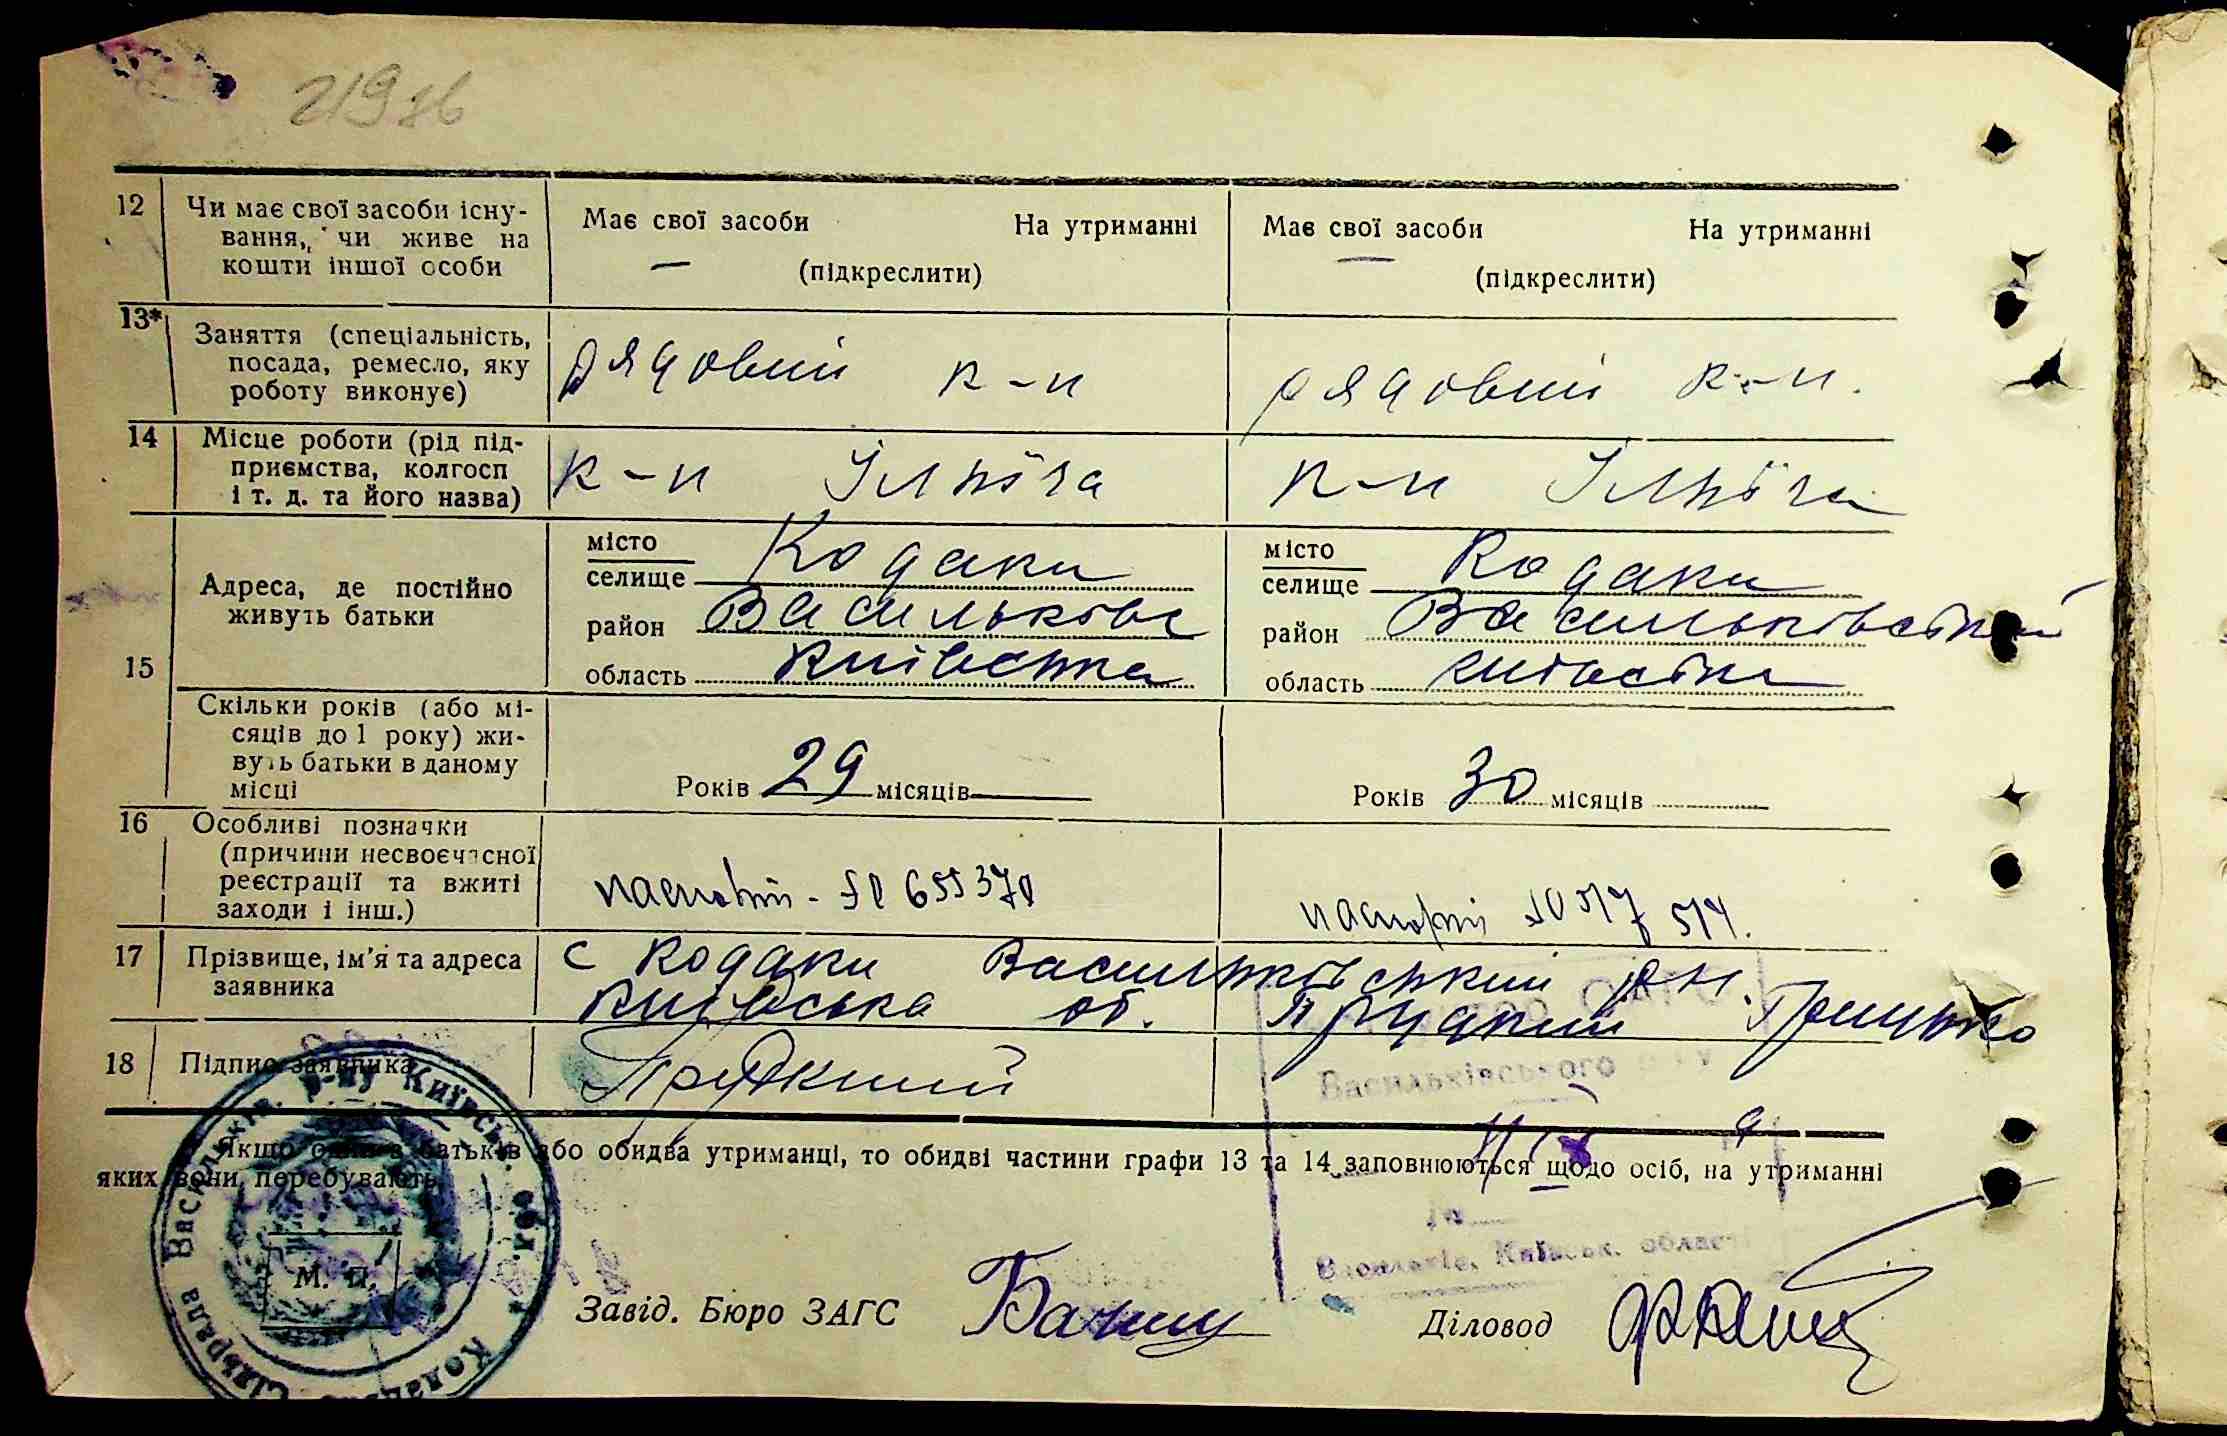 219зв
12 Чи має свої засоби існу-
вання, чи живе на
кошти іншої особи
Має свої засоби На утриманні
(підкреслити)
Має свої засоби На утриманні
(підкреслити)
13* Заняття (спеціальність,
посада, ремесло, яку
роботу виконує)
рядовий к-п
рядовий к-п.
14 Місце роботи (рід під-
приємства, колгосп
і т. д. та його назва)
к-п Ілліча
к-п Ілліча
15
Адреса, де постійно
живуть батьки
місто
селище Кодаки
район Васильківс
область Київська
місто
селище Кодаки
район Васильківський
область Київська
Скільки років (або мі-
сяців до 1 року) жи-
вуть батьки в даному
місці
Років 29 місяців
Років 30 місяців
16 Особливі позначки
(причини несвоєчасної
реєстрації та вжиті
заходи і інш.)
паспорт - 655370
паспорт 517 514.
17 Прізвище, ім'я та адреса
заявника
с Кодаки Васильківський рн.
Київська об. Грицько
18 Підпис заявника
Якщо один з батьків або обидва утриманці, то обидві частини графи 13 та 14 заповнюються щодо осіб, на утриманні
яких вони перебувають.
Васильківського
Васильків, Київськ. област
Сільрада Васильків. р-ну Київськ. обл.
М. П.
Завід. Бюро ЗАГС
Діловод